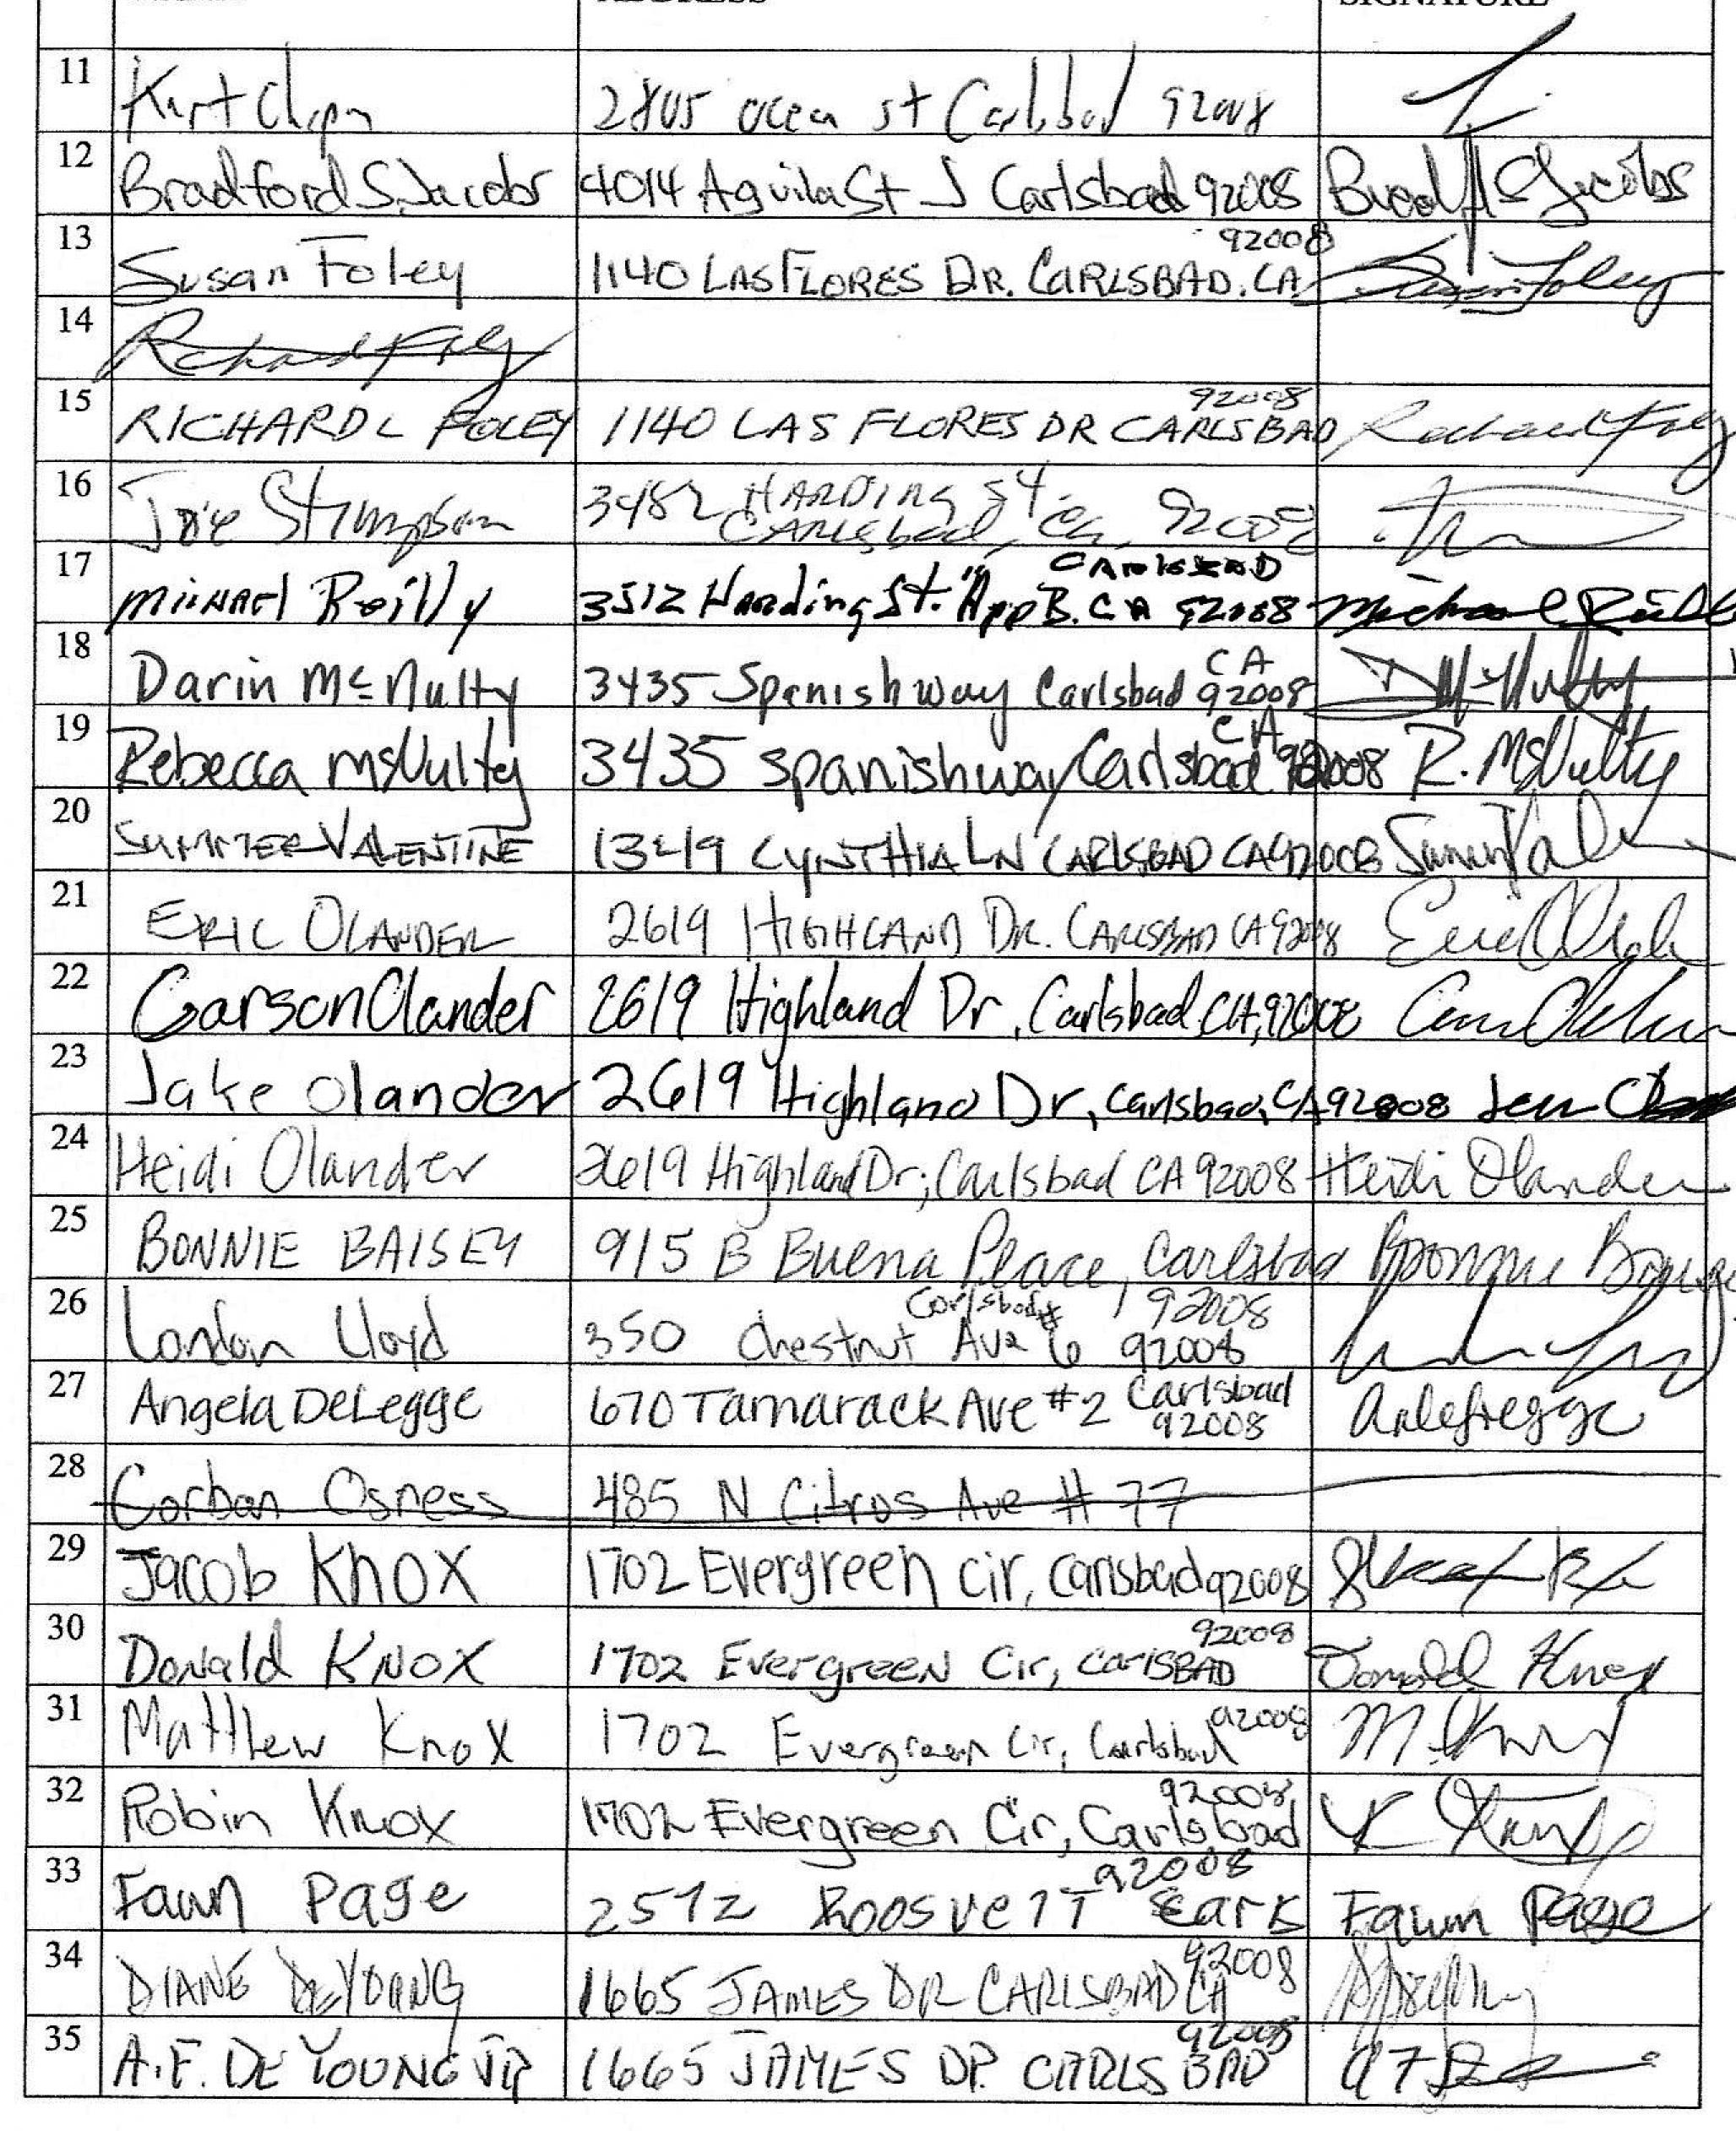 ADDRESS SIGNATURE
11 Kurt 2805 Ocean st Carlsbad 92008
12 Bradford S. Jacobs 4014 Aguila St J Carlsbad 92008 Brad S Jacobs
92008
13 Susan Foley 1140 LAS FLORES DR. CARLSBAD. CA Susan Foley
14 Richard Foley
92008
15 RICHARD L FOLEY 1140 LAS FLORES DR CARLSBAD Richard Foley
16 Stimpson 3482 HARDING St.
CARLSbad, Ca, 92008
CARLSBAD
17 Michael Reilly 3512 Harding St. App B. CA 92008 Michael Reilly
CA
18 Darin McNulty 3435 Spanish way Carlsbad 92008 McNulty
CA
19 Rebecca McNulty 3435 spanish way Carlsbad 92008 R. McNulty
20 SUMMER VALENTINE 1349 CYNTHIA LN CARLSBAD CA 92008
21 ERIC OLANDER 2619 HIGHLAND DR. CARLSBAD CA 92008
22 Carson Olander 2619 Highland Dr, Carlsbad, CA, 92008
23 Jake Olander 2619 Highland Dr, Carlsbad, CA 92008
24 Heidi Olander 2619 Highland Dr; Carlsbad CA 92008 Heidi Olander
25 BONNIE BAISEY 915 B Buena Place, Carlsbad Bonnie
Carlsbad # 92008
26 London Lloyd 350 Chestnut Ave 6 92008
27 Angela DeLegge 670 Tamarack Ave #2 Carlsbad
92008
28 Corban Osness 485 N Citrus Ave # 77
29 Jacob Knox 1702 Evergreen cir, Carlsbad 92008
92008
30 Donald KNOX 1702 EvergreeN Cir, CarlSBAD Donald Knox
92008
31 Matthew Knox 1702 Evergreen Cir, Carlsbad M. Knox
92008
32 Robin Knox 1702 Evergreen Cir, Carlsbad
92008
33 Fawn Page Roosvelt Carls Fawn Page
92008
34 DIANE DeYOUNG 1665 JAMES DR CARLSBAD CA
92008
35 A.F. DE YOUNG JR 1665 JAMES DR. CARLSBAD